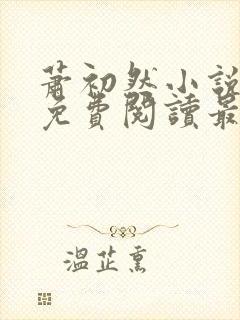 蕭初然小說
免費閱讀最
溫芷熏